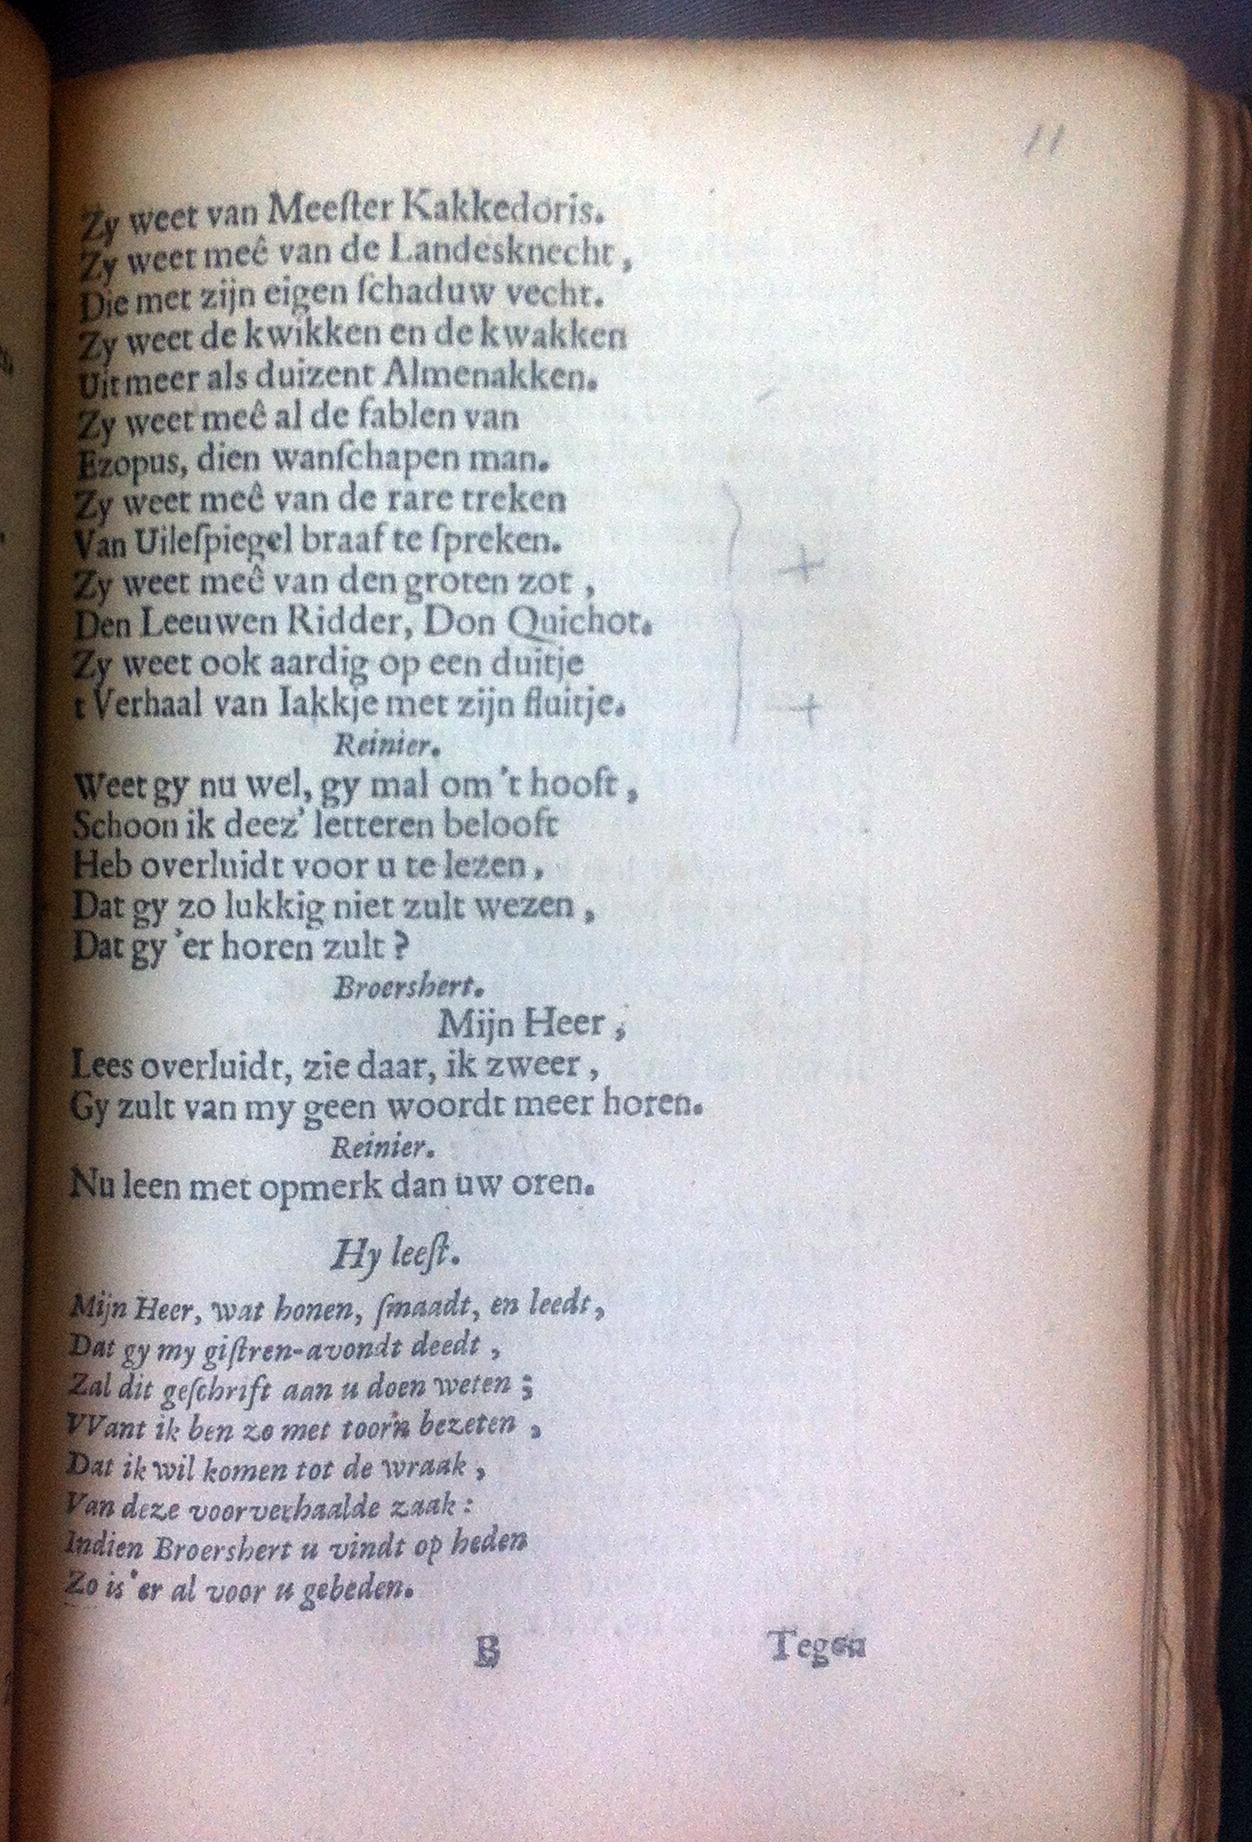 11
Zy weet van Meeſter Kakkedoris.
Zy weet meê van de Landesknecht,
Die met zijn eigen ſchaduw vecht.
Zy weet de kwikken en de kwakken
Uit meer als duizent Almenakken.
Zy weet meê al de fablen van
Ezopus, dien wanſchapen man.
Zy weet meê van de rare treken
Van Uileſpiegel braaf te ſpreken.
Zy weet meê van den groten zot,
Den Leeuwen Ridder, Don Quichot.
Zy weet ook aardig op een duitje
t Verhaal van Iakkje met zijn fluitje.
Reinier.
Weet gy nu wel, gy mal om 't hooft,
Schoon ik deez' letteren belooft
Heb overluidt voor u te lezen,
Dat gy zo lukkig niet zult wezen,
Dat gy 'er horen zult?
Broershert.
Mijn Heer,
Lees overluidt, zie daar, ik zweer,
Gy zult van my geen woordt meer horen.
Reinier.
Nu leen met opmerk dan uw oren.
Hy leeſt.
Mijn Heer, wat honen, ſmaadt, en leedt,
Dat gy my giſtren-avondt deedt,
Zal dit geſchrift aan u doen weten;
VVant ik ben zo met toorn bezeten,
Dat ik wil komen tot de wraak,
Van deze voorverhaalde zaak:
Indien Broershert u vindt op heden
Zo is'er al voor u gebeden.
B Tegen